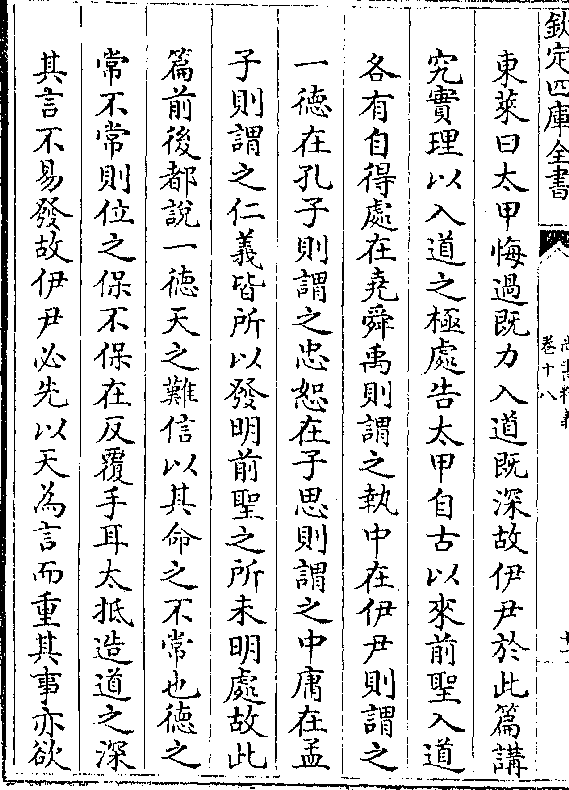 欽定四庫全書
尚書精義
卷十八
東萊曰太甲悔過既力入道既深故伊尹於此篇講
究實理以入道之極處告太甲自古以來前聖入道
各有自得處在堯舜禹則謂之執中在伊尹則謂之
一德在孔子則謂之忠恕在子思則謂之中庸在孟
子則謂之仁義皆所以發明前聖之所未明處故此
篇前後都說一德天之難信以其命之不常也德之
常不常則位之保不保在反覆手耳太抵造道之深
其言不易發故伊尹必先以天為言而重其事亦欲